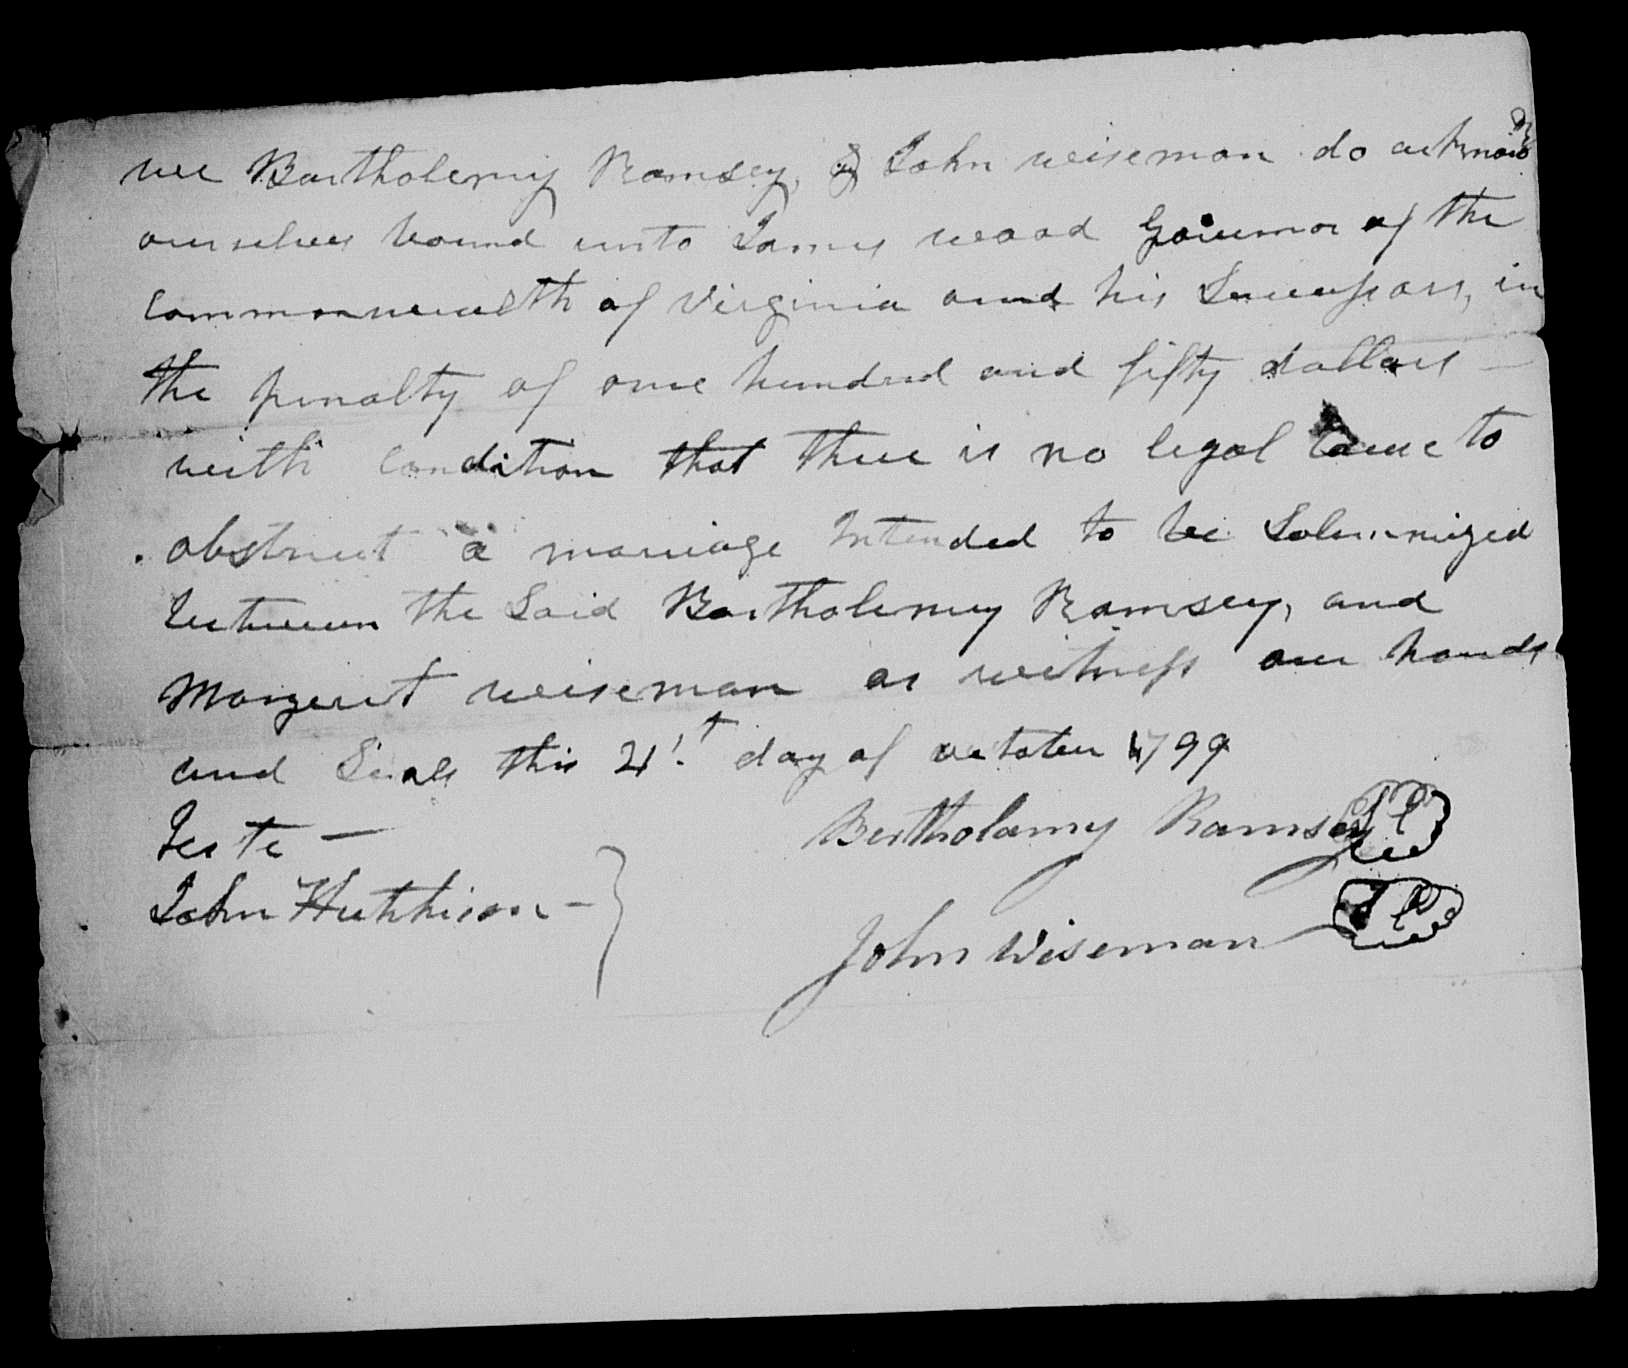 we Bartholemy Ramsey, & John weiseman do acknowg
ourselves bound unto James wood Governor of the
Commonwealth of Virginia and his Successors, in
the penalty of one hundred and fifty dollars —
with Condition that there is no legal Cause to
obstruct a marriage Intended to be Solemnized
between the Said Bartholemy Ramsey, and
Margeret weiseman as witness our hands
and Seals this 21st day of october 1799
Teste —
Bertholamy Ramsey
John Hutchison —
John Wiseman